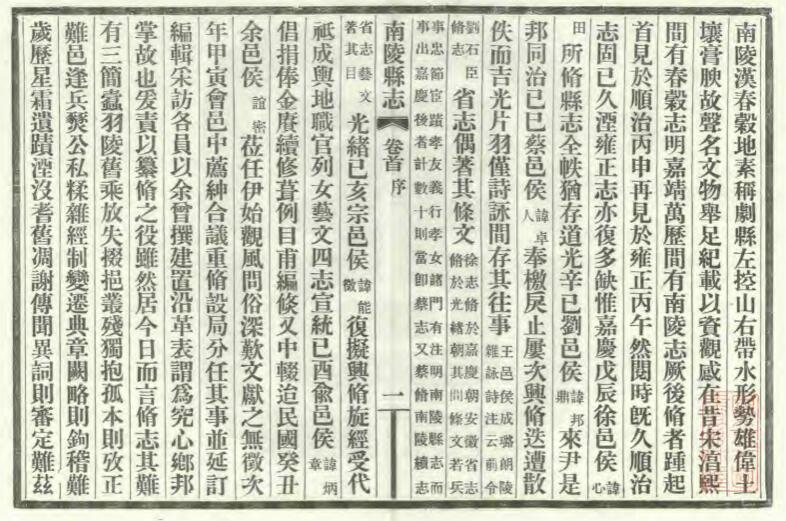 南陵漢春穀地素稱劇縣左控山右帶水形勢雄偉土
壤膏腴故聲名文物舉足紀載以資觀感在昔宋湻熙
間有春穀志明嘉靖萬歷間有南陵志厥後脩者踵起
首見於順治丙申再見於雍正丙午然閱時旣久順治
志固已久湮雍正志亦復多缺惟嘉慶戊辰徐邑侯諱心
田所脩縣志全帙猶存道光辛巳劉邑侯諱邦鼎來尹是
邦同治己巳蔡邑侯諱卓人奉檄戾止屢次興脩迭遭散
佚而吉光片羽僅詩詠間存其往事王邑侯成璐朗陵雜詠詩注云前令
劉石臣脩志省志偶著其條文徐志脩於嘉慶朝安徽省志脩於光緒朝其間條文若兵
事忠節宦蹟孝友義行孝女諸門有注明南陵縣志而事出嘉慶後者計數十則當卽蔡志又蔡脩南陵續志
南陵縣志 卷首 序 一
省志藝文著其目光緒己亥宗邑侯諱能徵復擬興脩旋經受代
祗成輿地職官列女藝文四志宣統己酉兪邑侯諱炳章
倡捐俸金賡續修葺例目甫編倐又中輟迨民國癸丑
余邑侯誼密蒞任伊始觀風問俗深歎文獻之無徵次
年甲寅會邑中薦紳合議重脩設局分任其事並延訂
編輯采訪各員以余曾撰建置沿革表謂爲究心鄉邦
掌故也爰責以纂脩之役雖然居今日而言脩志其難
有三簡蠹羽陵舊乘放失掇挹叢殘獨抱孤本則攷正
難邑逢兵燹公私糅雜經制變遷典章闕略則鉤稽難
歲歷星霜遺蹟湮沒耆舊凋謝傳聞異詞則審定難茲